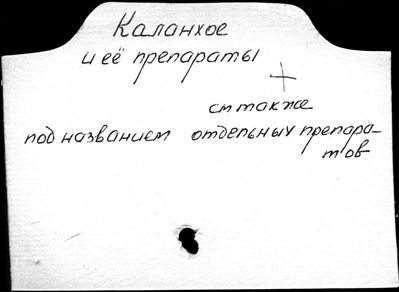 Каланхое
и её препараты
+
см также
под названием отдельных препара-
тов